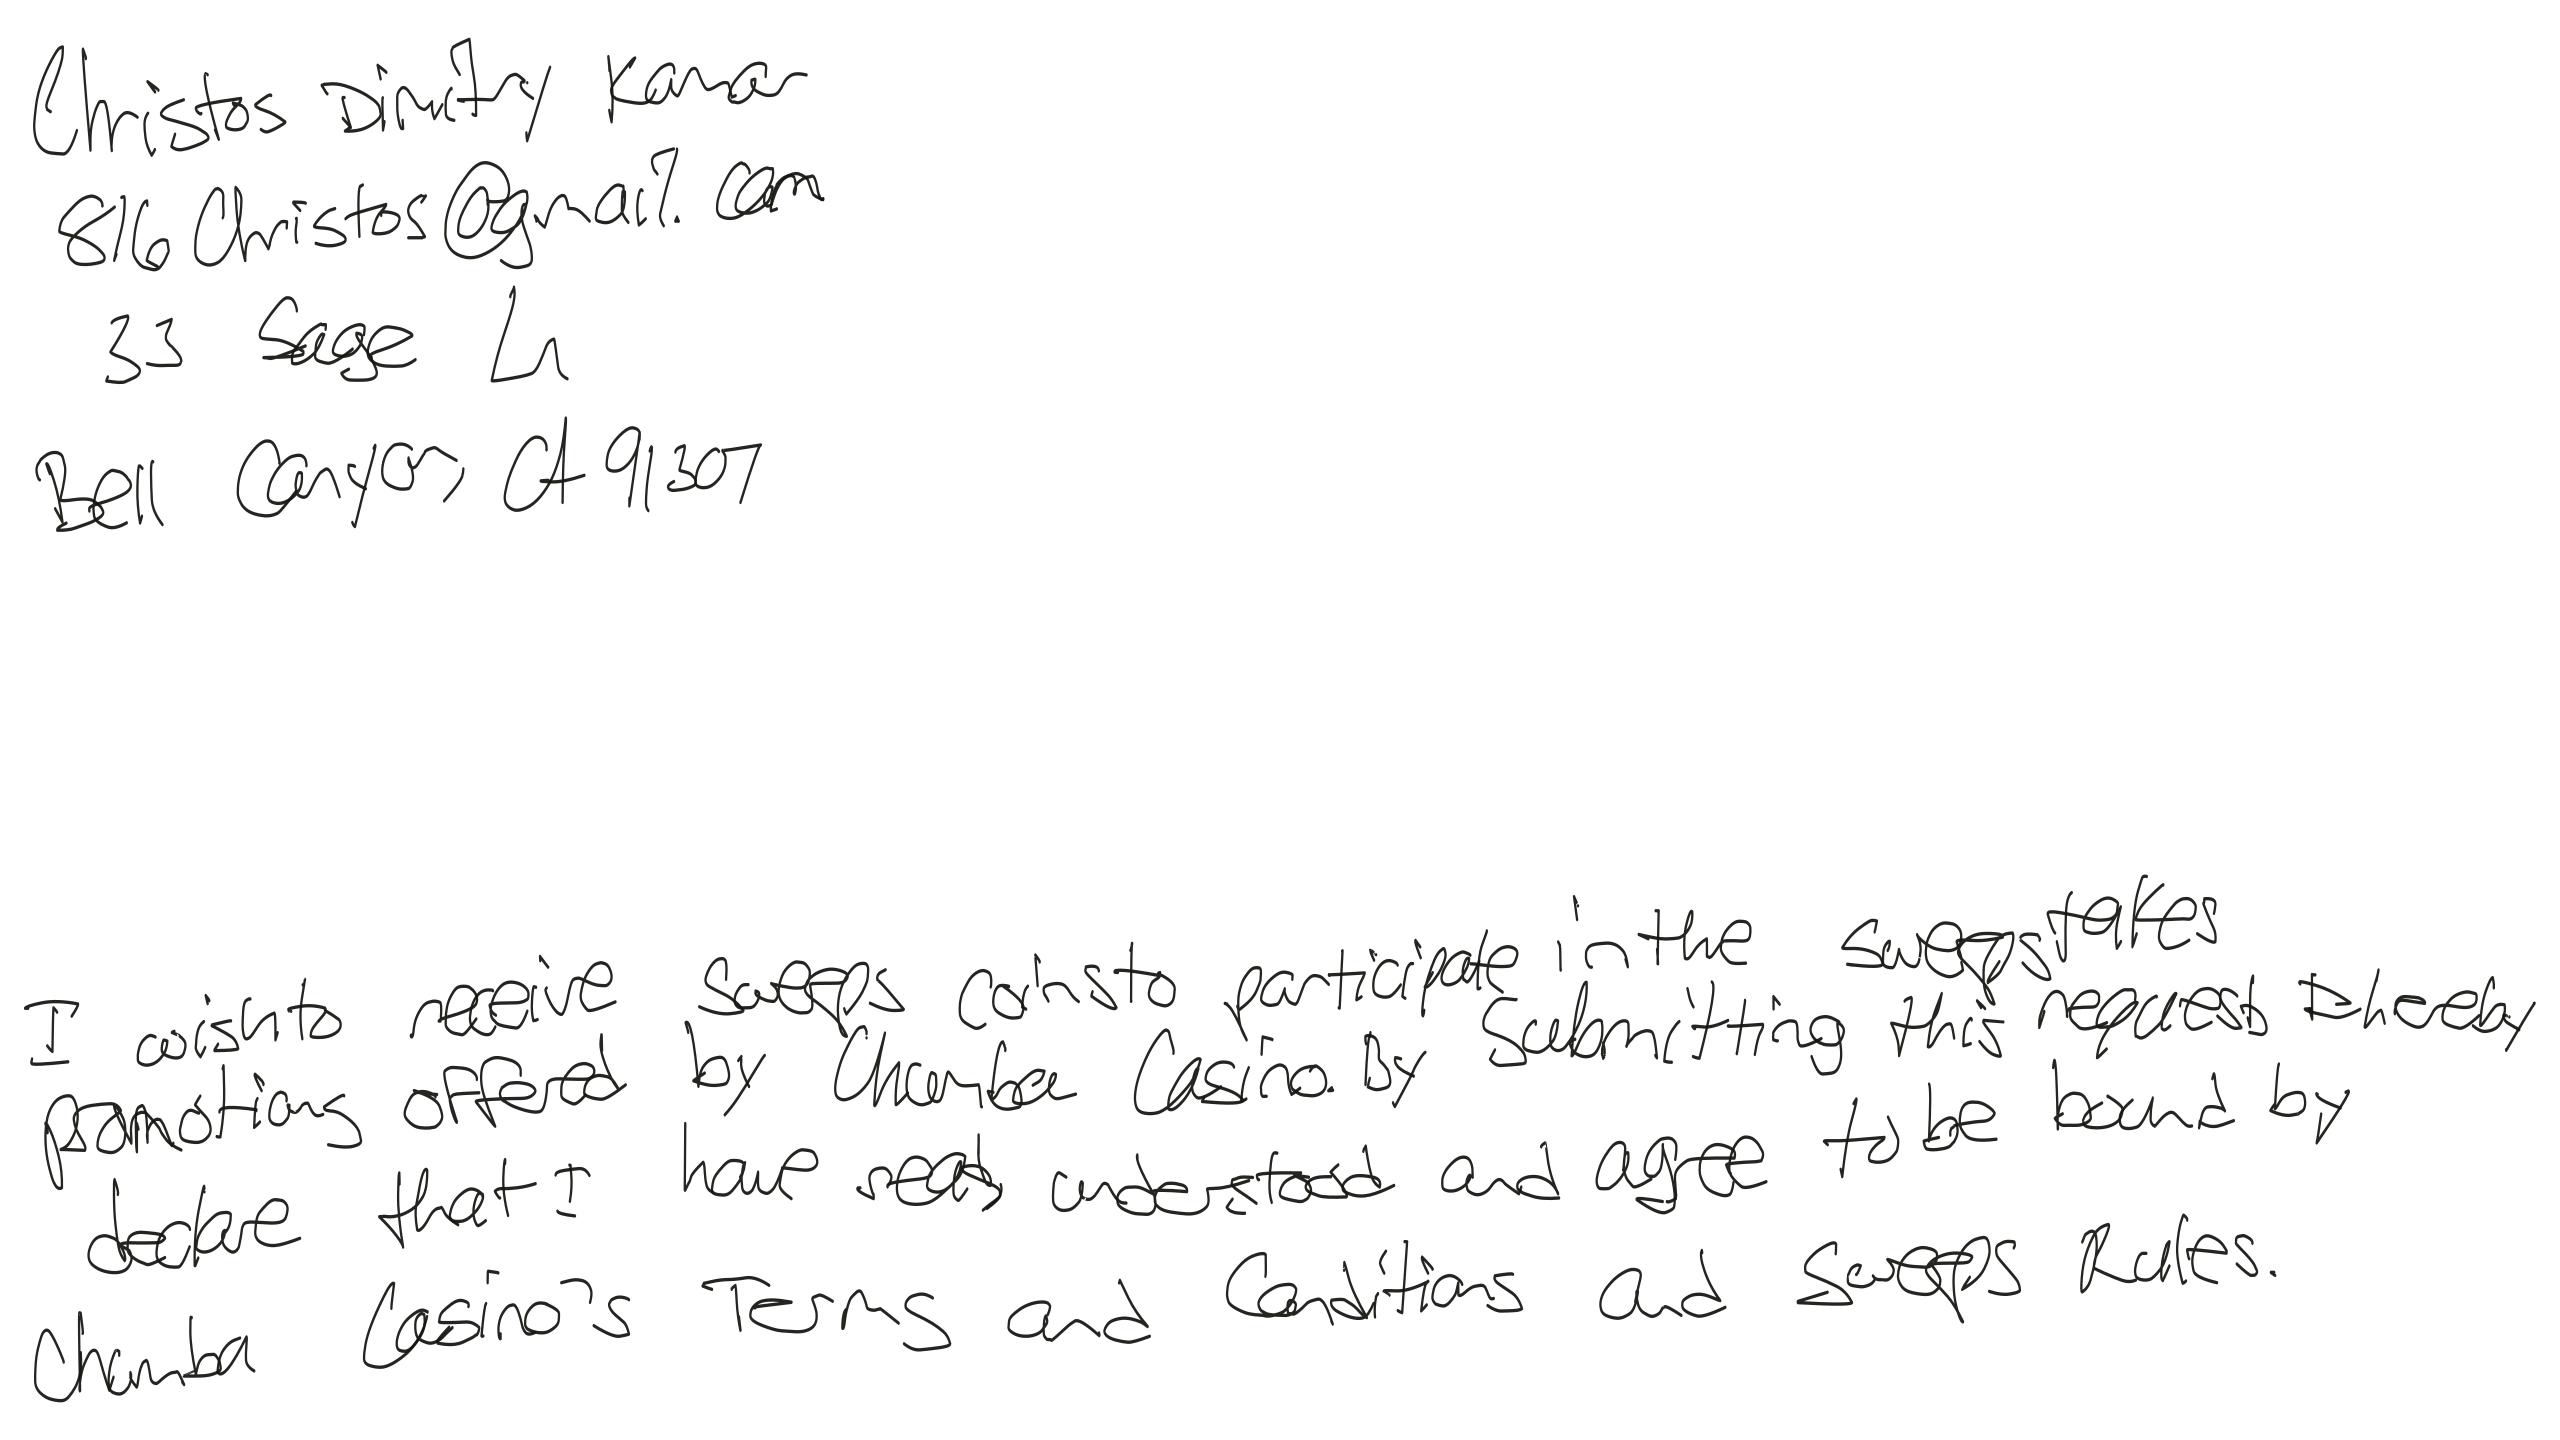 Christos Dimitry Kanar
816Christos@gmail.com
33 Sage Ln
Bell Canyon, CA 91307
I wish to receive Sweeps coins to participate in the sweepstakes
promotions offered by Chumba Casino. By Submitting this request I hereby
declare that I have read, understood and agree to be bound by
Chumba Casino's Terms and Conditions and Sweeps Rules.